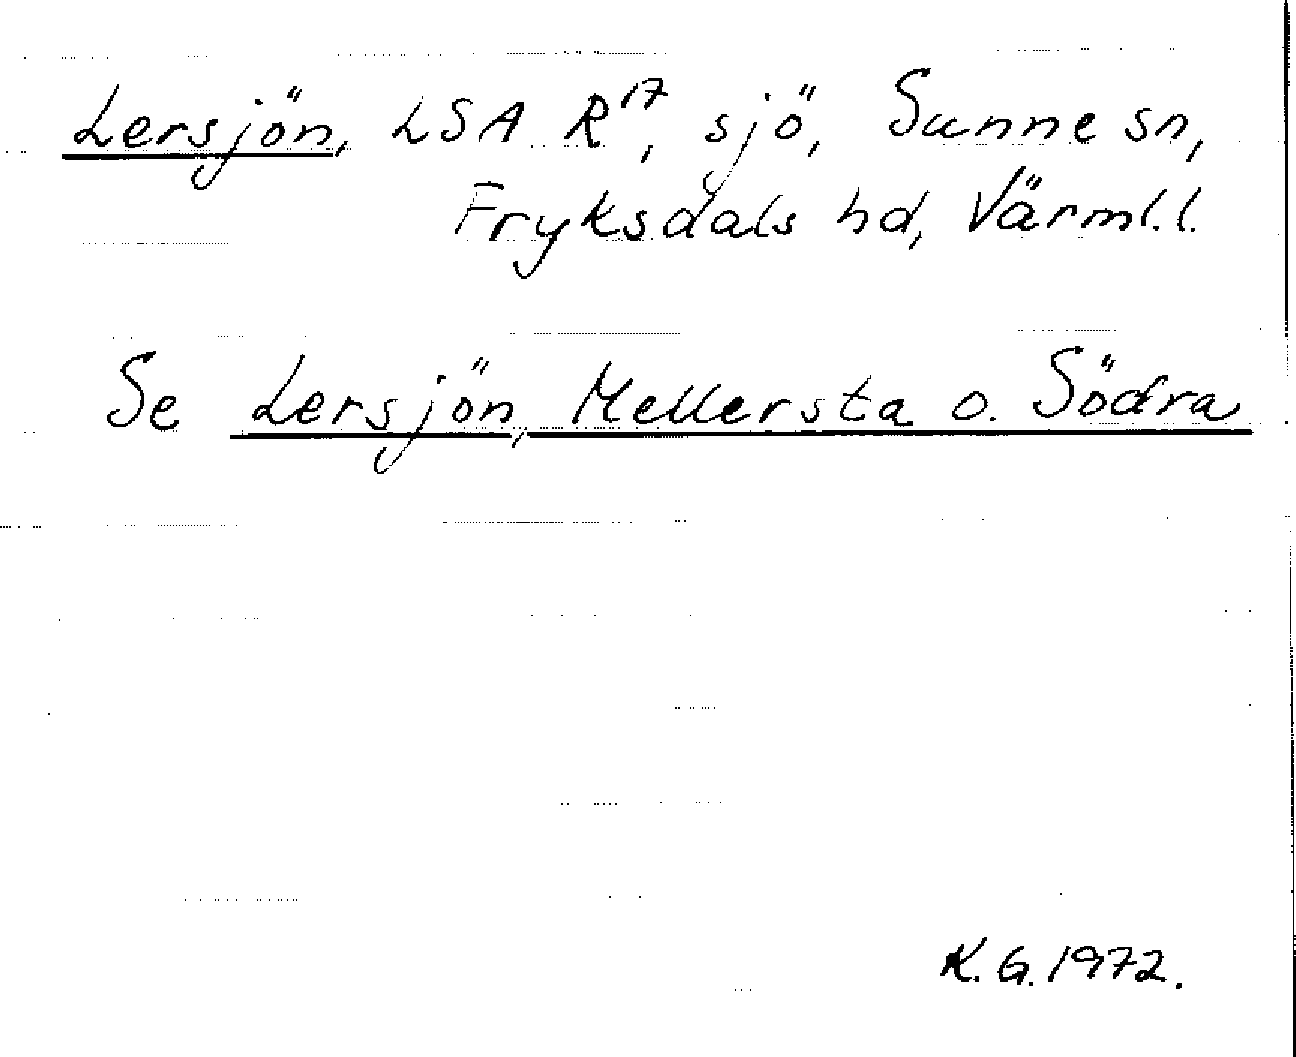 Lersjön, LSA R¹⁷, sjö, Sunne sn,
Fryksdals hd, Värml.l.
Se Lersjön, Mellersta o. Södra
K.G. 1972.